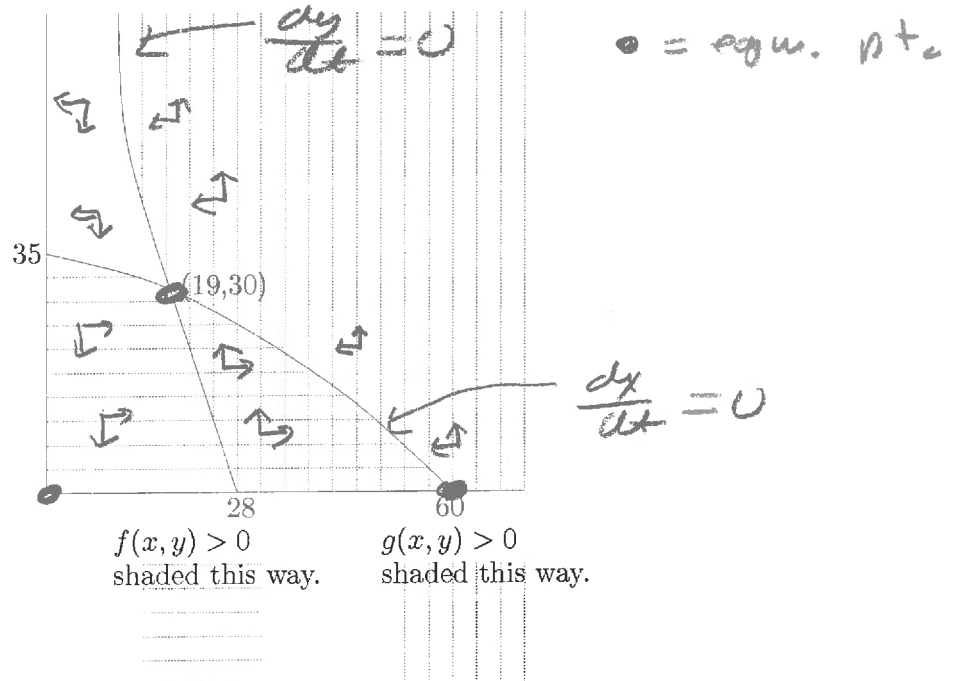 dy/dt = 0
• = eqm. pt.
35
(19,30)
dx/dt = 0
28
60
f(x, y) > 0
shaded this way.
g(x, y) > 0
shaded this way.